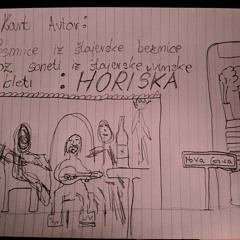 Kant Avtor:
esmice iz štajerske bezmice
oz soneti iz štajerske vinske
kleti : HORIŠKA
Nova Gorica